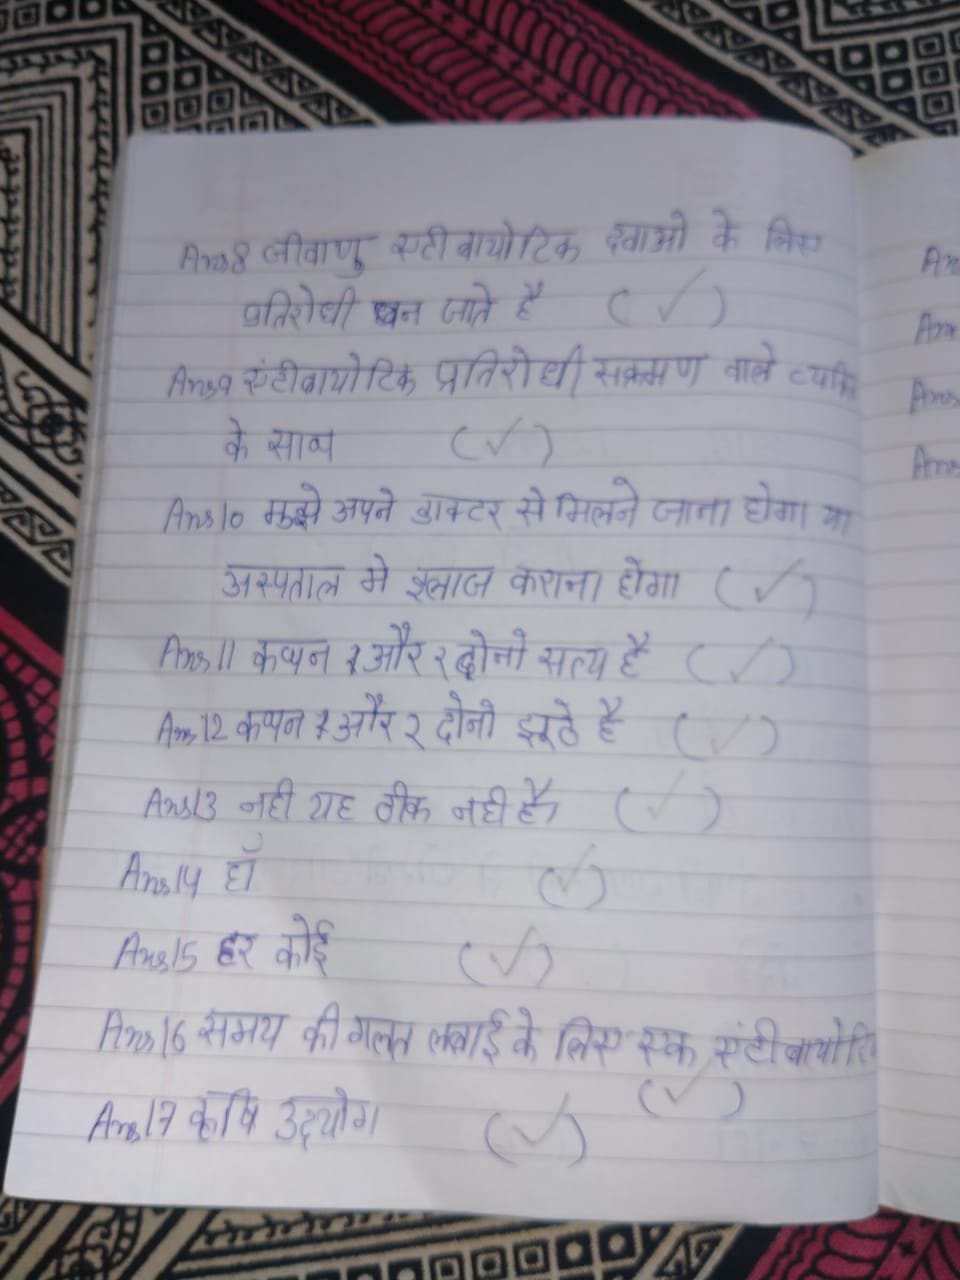 Ans8 जीवाणु एटीबायोटिक दवाओ के लिए
प्रतिरोधी बन जाते है (✓)
Ans9 एंटीबायोटिक प्रतिरोधी सक्रमण वाले व्यक्ति
के साथ (✓)
Ans10 मुझे अपने डाक्टर से मिलने जाना होगा या
अस्पताल मे इलाज कराना होगा (✓)
Ans11 कथन १ और २ दोनो सत्य है (✓)
Ans12 कथन १ और २ दोनो झूठे है (✓)
Ans13 नही यह ठीक नही है (✓)
Ans14 हाँ (✓)
Ans15 हर कोई (✓)
Ans16 समय की गलत लबाई के लिए एक एंटीबायोटि
(✓)
Ans17 कृषि उद्योग (✓)
An
Ans
Ans
Ans